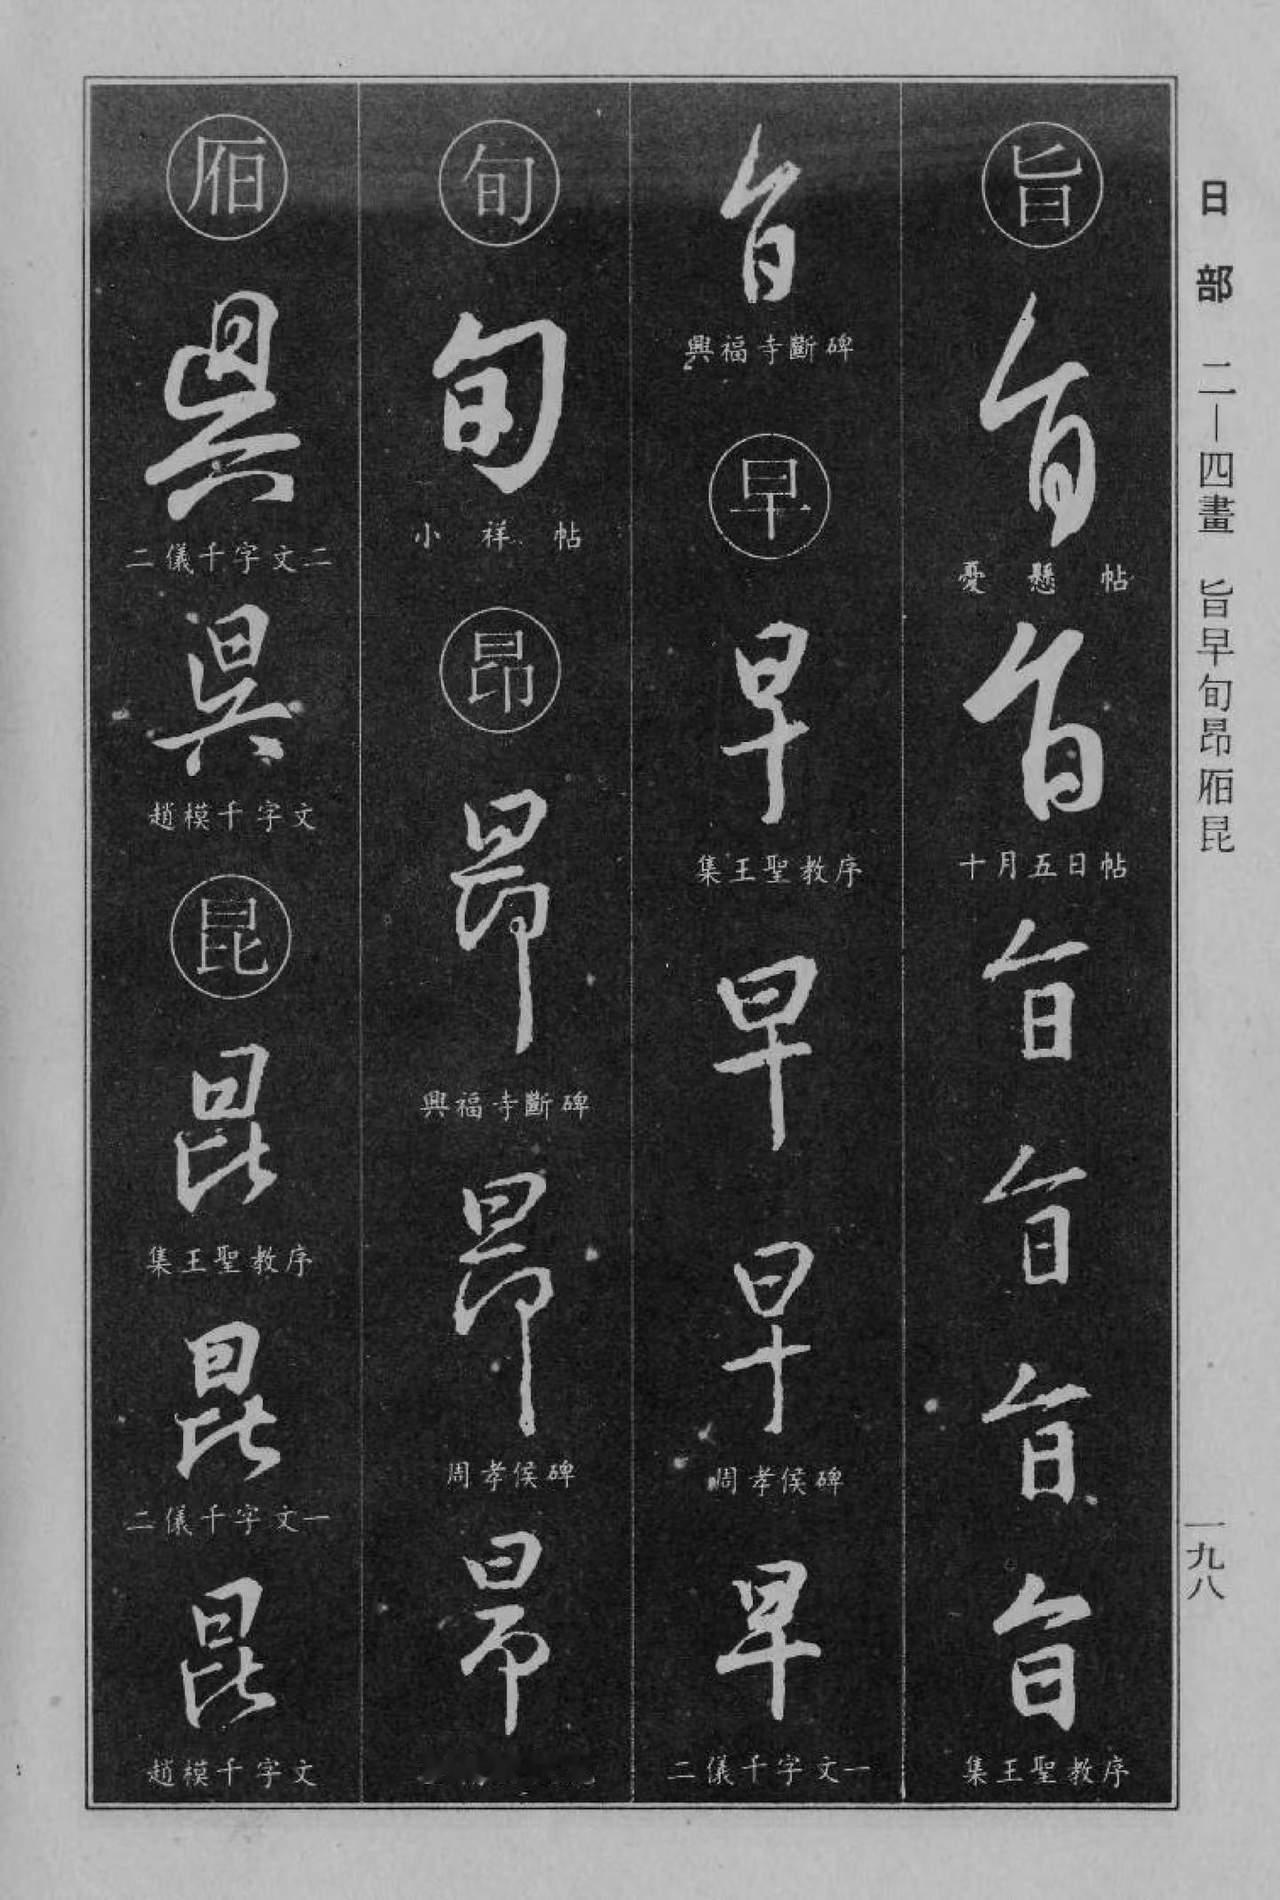 日部 二—四畫 旨早旬昂厢昆
一九八
旨
旨
憂懸帖
旨
十月五日帖
旨
旨
旨
旨
集王聖教序
旨
興福寺斷碑
早
早
集王聖教序
早
早
周孝侯碑
早
二儀千字文一
旬
旬
小祥帖
昂
昂
興福寺斷碑
昂
周孝侯碑
昂
二儀千字文二
趙模千字文
昆
昆
集王聖教序
昆
二儀千字文一
昆
趙模千字文